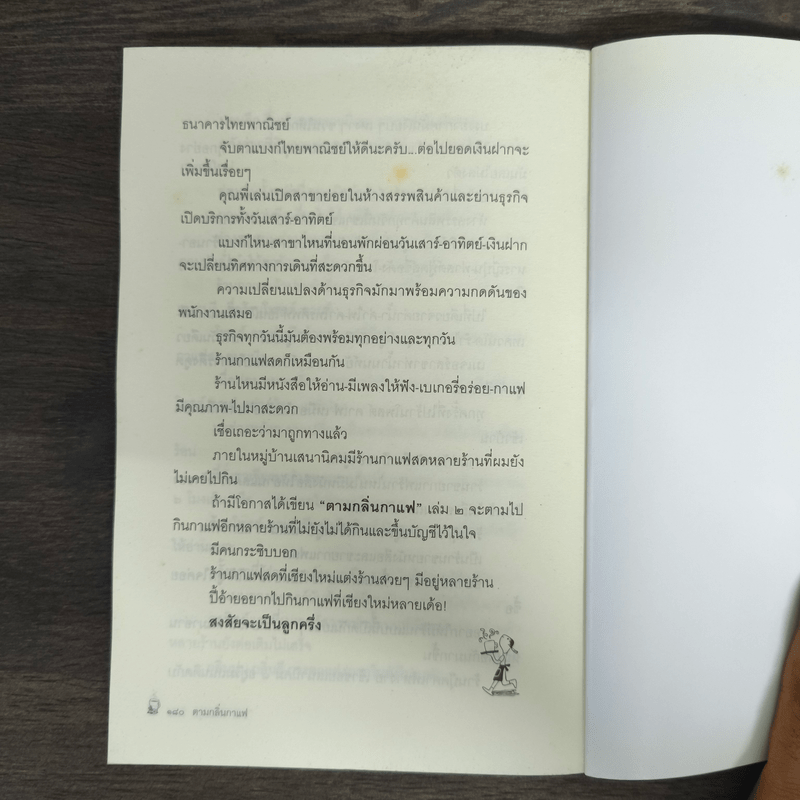 ธนาคารไทยพาณิชย์
จับตาแบงก์ไทยพาณิชย์ให้ดีนะครับ...ต่อไปยอดเงินฝากจะ
เพิ่มขึ้นเรื่อยๆ
คุณพี่เล่นเปิดสาขาย่อยในห้างสรรพสินค้าและย่านธุรกิจ
เปิดบริการทั้งวันเสาร์-อาทิตย์
แบงก์ไหน-สาขาไหนที่นอนพักผ่อนวันเสาร์-อาทิตย์-เงินฝาก
จะเปลี่ยนทิศทางการเดินที่สะดวกขึ้น
ความเปลี่ยนแปลงด้านธุรกิจมักมาพร้อมความกดดันของ
พนักงานเสมอ
ธุรกิจทุกวันนี้มันต้องพร้อมทุกอย่างและทุกวัน
ร้านกาแฟสดก็เหมือนกัน
ร้านไหนมีหนังสือให้อ่าน-มีเพลงให้ฟัง-เบเกอรี่อร่อย-กาแฟ
มีคุณภาพ-ไปมาสะดวก
เชื่อเถอะว่ามาถูกทางแล้ว
ภายในหมู่บ้านเสนานิคมมีร้านกาแฟสดหลายร้านที่ผมยัง
ไม่เคยไปกิน
ถ้ามีโอกาสได้เขียน “ตามกลิ่นกาแฟ” เล่ม ๒ จะตามไป
กินกาแฟอีกหลายร้านที่ไม่ยังไม่ได้กินและขึ้นบัญชีไว้ในใจ
มีคนกระซิบบอก
ร้านกาแฟสดที่เชียงใหม่แต่งร้านสวยๆ มีอยู่หลายร้าน
ปี้อ้ายอยากไปกินกาแฟที่เชียงใหม่หลายเด้อ!
สงสัยจะเป็นลูกครึ่ง
๑๘๐ ตามกลิ่นกาแฟ